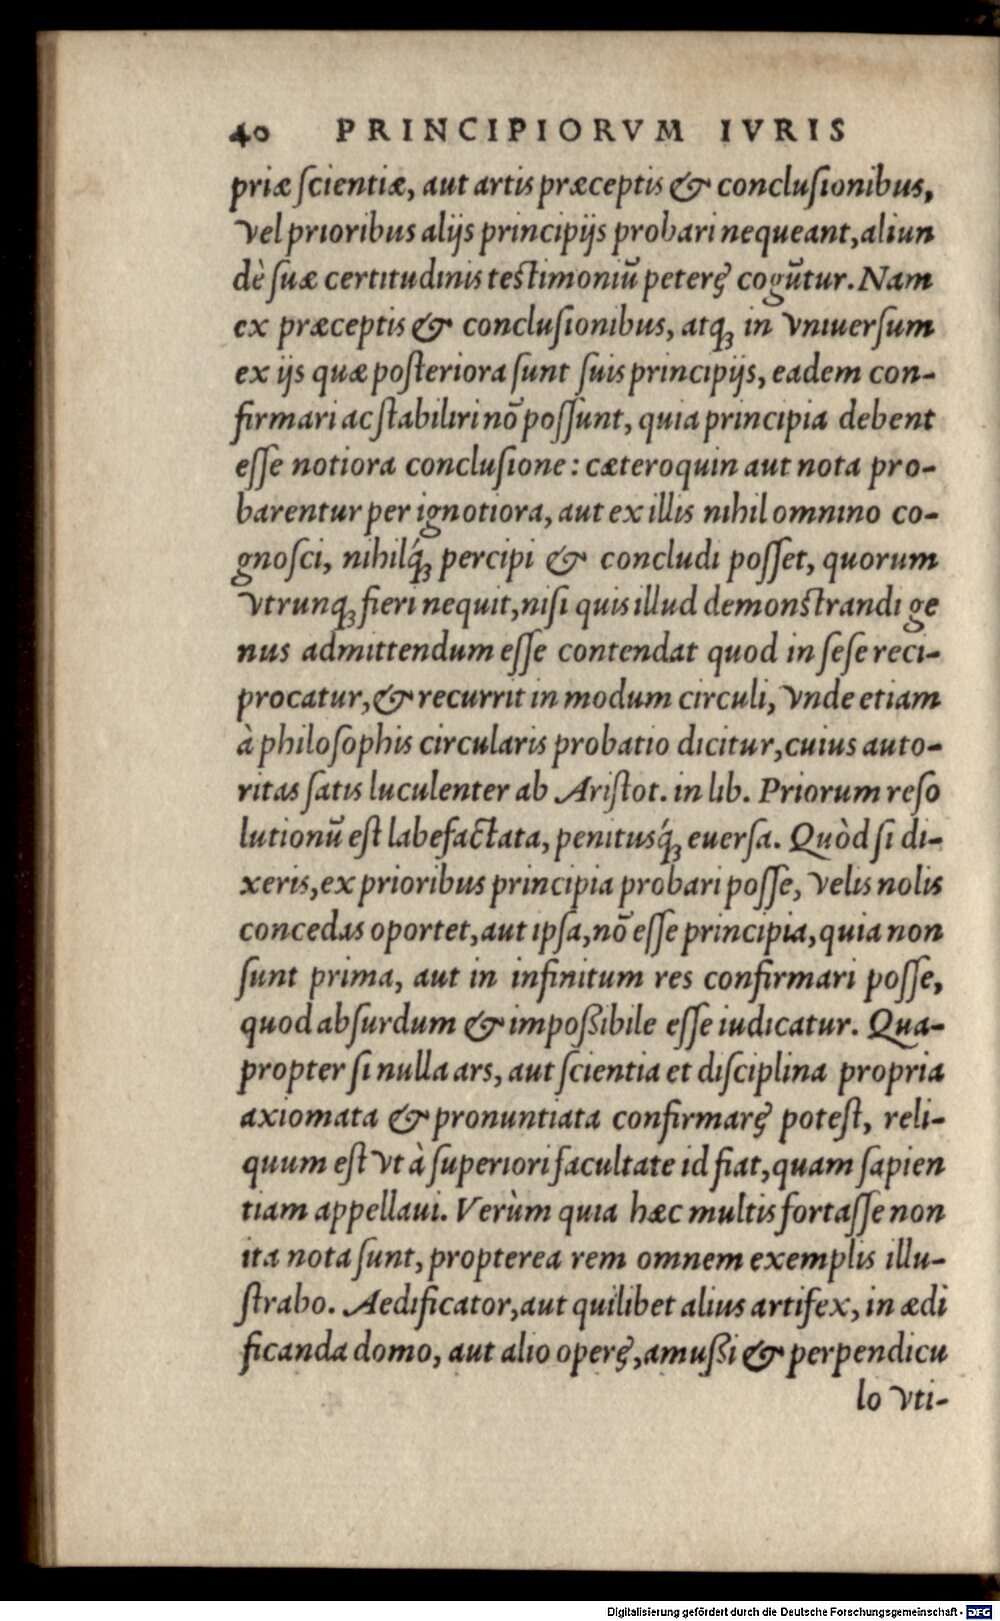 40 PRINCIPIORVM IVRIS
priæ ſcientiæ, aut artis præceptis & concluſionibus,
vel prioribus alijs principijs probari nequeant, aliun
dè ſuæ certitudinis teſtimoniũ peterę cogũtur. Nam
ex præceptis & concluſionibus, atq; in vniuerſum
ex ijs quæ poſteriora ſunt ſuis principijs, eadem con-
firmari ac ſtabiliri nõ poſſunt, quia principia debent
eſſe notiora concluſione: cæteroquin aut nota pro-
barentur per ignotiora, aut ex illis nihil omnino co-
gnoſci, nihilq́; percipi & concludi poſſet, quorum
vtrunq; fieri nequit, niſi quis illud demonſtrandi ge
nus admittendum eſſe contendat quod in ſeſe reci-
procatur, & recurrit in modum circuli, vnde etiam
à philoſophis circularis probatio dicitur, cuius auto-
ritas ſatis luculenter ab Ariſtot. in lib. Priorum reſo
lutionũ eſt labefactata, penitusq́; euerſa. Quòd ſi di-
xeris, ex prioribus principia probari poſſe, velis nolis
concedas oportet, aut ipſa, nõ eſſe principia, quia non
ſunt prima, aut in infinitum res confirmari poſſe,
quod abſurdum & impoßibile eſſe iudicatur. Qua-
propter ſi nulla ars, aut ſcientia et diſciplina propria
axiomata & pronuntiata confirmarę poteſt, reli-
quum eſt vt à ſuperiori facultate id fiat, quam ſapien
tiam appellaui. Verùm quia hæc multis fortaſſe non
ita nota ſunt, propterea rem omnem exemplis illu-
ſtrabo. Aedificator, aut quilibet alius artifex, in ædi
ficanda domo, aut alio operę, amußi & perpendicu
lo vti-
Digitalisierung gefördert durch die Deutsche Forschungsgemeinschaft - DFG